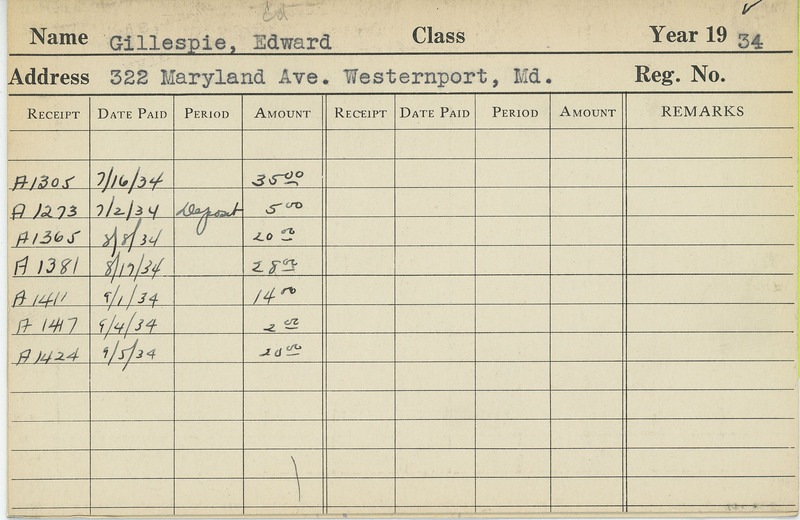 Ed
Name Gillespie, Edward Class Year 19 34
Address 322 Maryland Ave. Westernport, Md. Reg. No.
RECEIPT DATE PAID PERIOD AMOUNT RECEIPT DATE PAID PERIOD AMOUNT REMARKS
A1305 7/16/34 35 00
A1273 7/2/34 Deposit 5 00
A1365 8/8/34 20 00
A1381 8/17/34 28 00
A1411 9/1/34 14 00
A1417 9/4/34 2 00
A1424 9/5/34 20 00